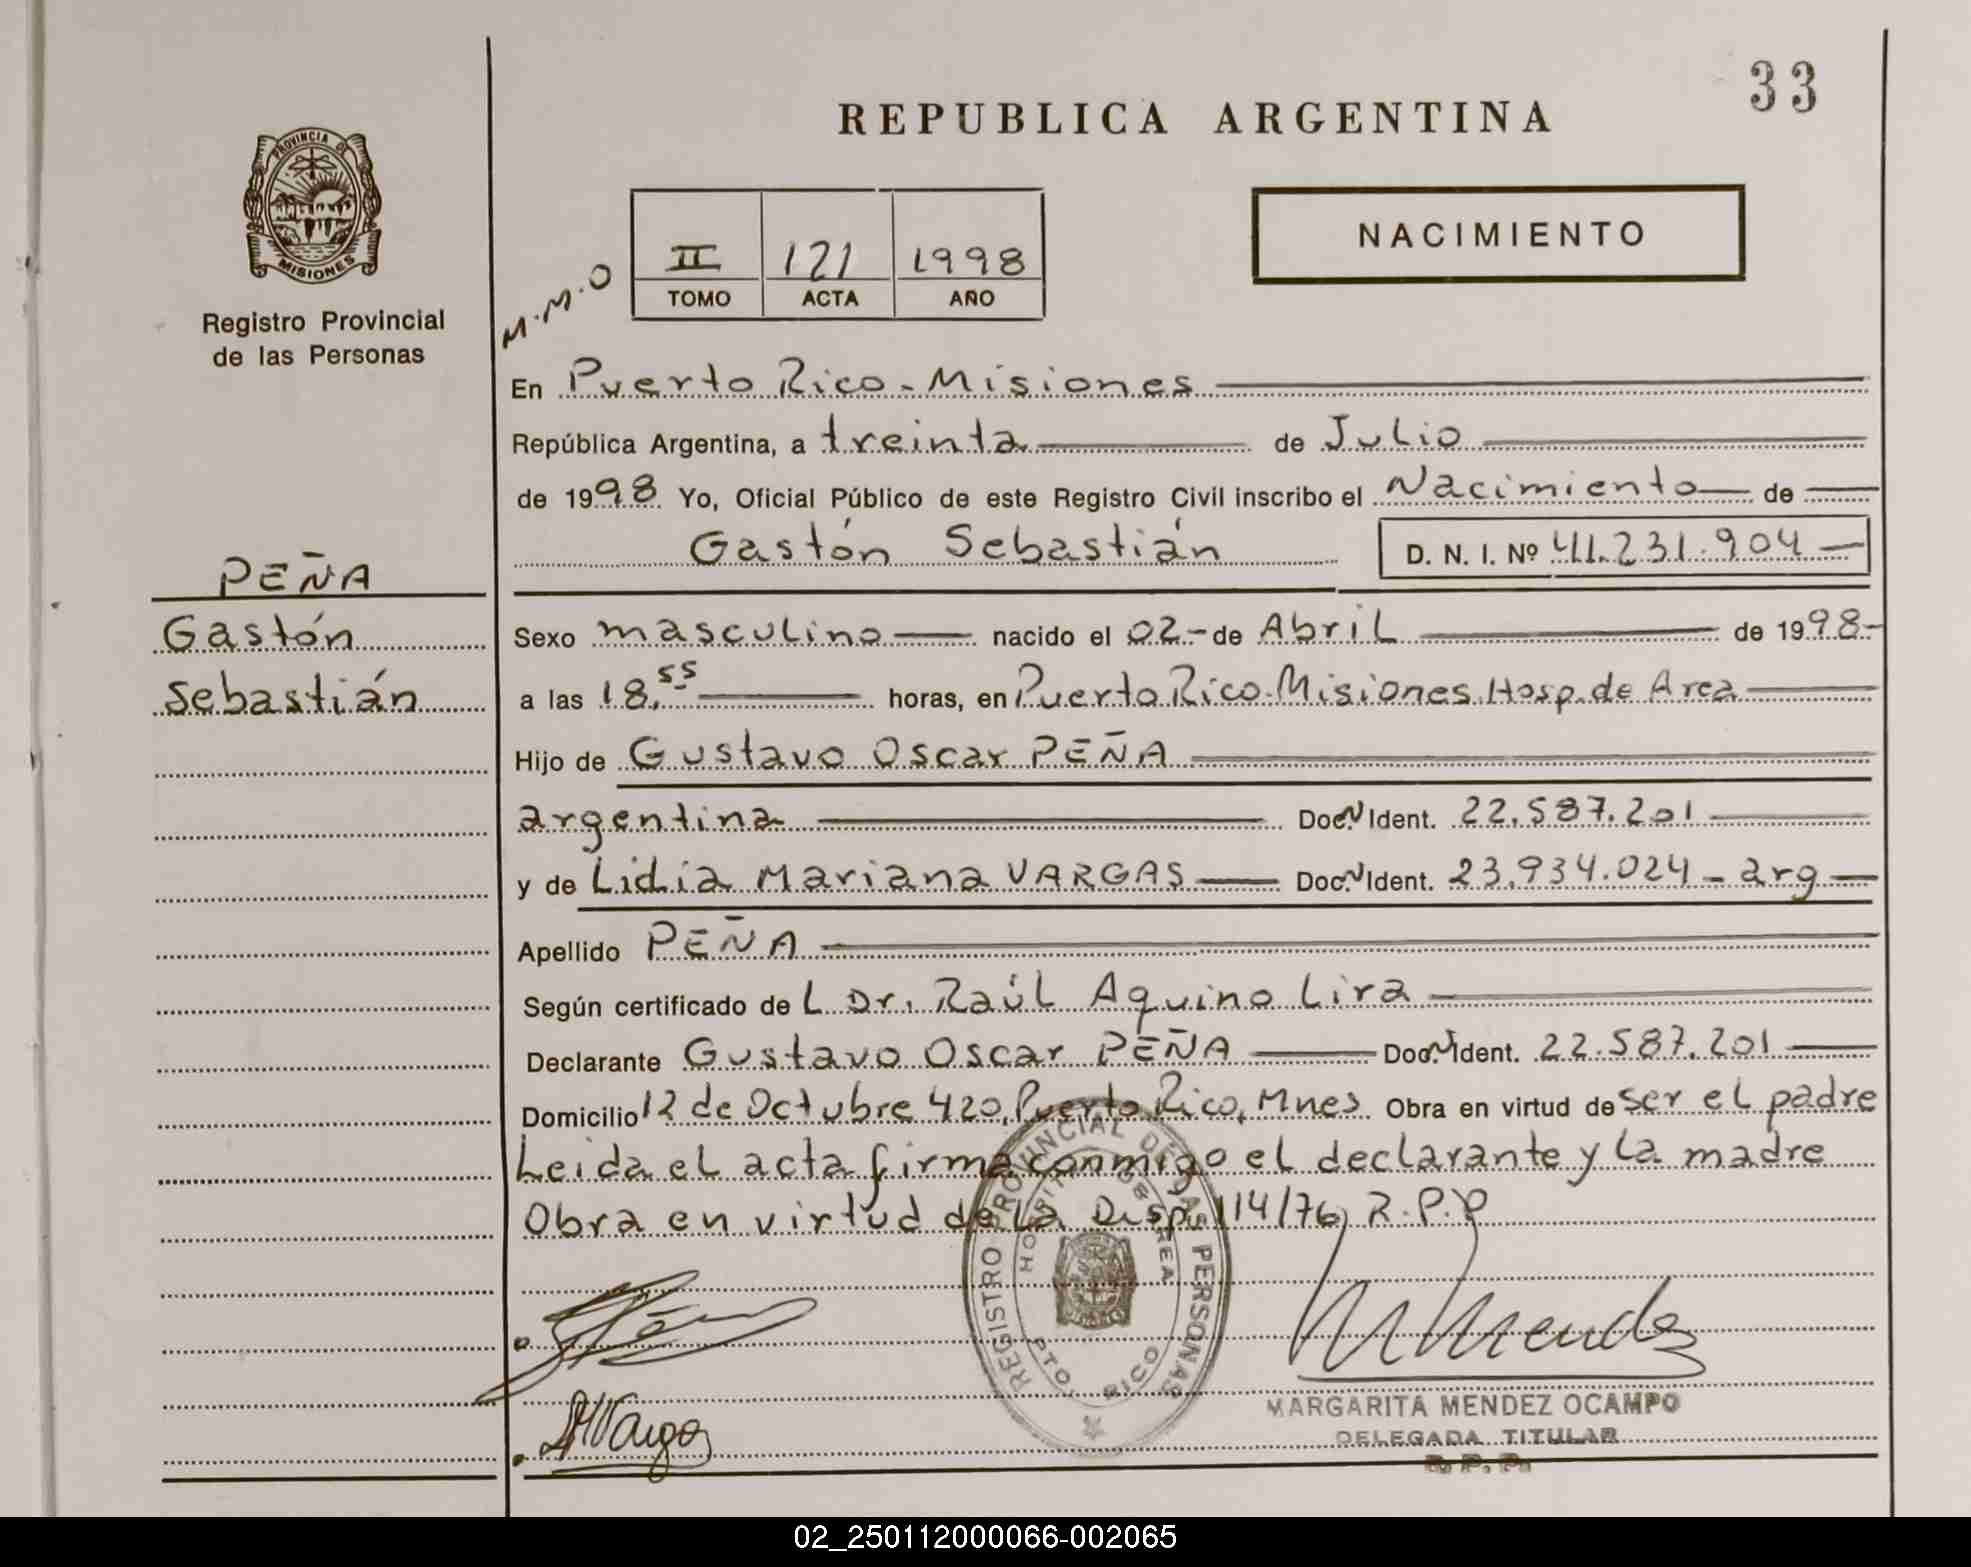 33
REPUBLICA ARGENTINA
PROVINCIA DE
MISIONES
Registro Provincial
de las Personas
M.M.O
II 121 1998
TOMO ACTA AÑO
NACIMIENTO
En Puerto Rico - Misiones
República Argentina, a treinta de Julio
de 1998 Yo, Oficial Público de este Registro Civil inscribo el Nacimiento de
Gastón Sebastián D. N. I. Nº 41.231.904
PEÑA
Gastón
Sebastián
Sexo masculino nacido el 02- de Abril de 1998-
a las 18,55 horas, en Puerto Rico-Misiones Hosp. de Area
Hijo de Gustavo Oscar PEÑA
argentina Doc. N Ident. 22.587.201
y de Lidia Mariana VARGAS Doc. N Ident. 23.934.024 - arg
Apellido PEÑA
Según certificado de L Dr. Raúl Aquino Lira
Declarante Gustavo Oscar PEÑA Doc. N Ident. 22.587.201
Domicilio 12 de Octubre 420, Puerto Rico, Mnes Obra en virtud de ser el padre
Leida el acta firma conmigo el declarante y la madre
Obra en virtud de la Disp. 114/76, R.P.P
REGISTRO PROVINCIAL DE LAS PERSONAS
PTO. RICO
M Mendez
MVargas
MARGARITA MENDEZ OCAMPO
DELEGADA TITULAR
R. P. P.
02_250112000066-002065